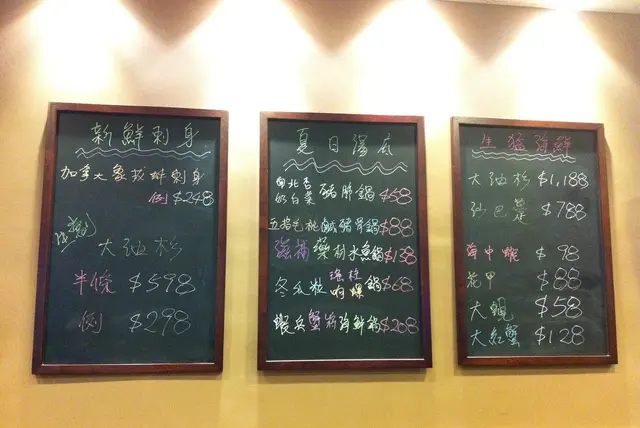 新鮮刺身
加拿大象拔蚌刺身
例 $248
大油杉
半條 $598
例 $298
夏日湯底
南北杏
奶白菜 豬肺鍋 $58
五指毛桃鹹豬骨鍋 $88
強精藥材水魚鍋 $138
冬瓜粒 瑤柱 鍋 $68
蝦兵蟹將海鮮鍋 $268
生猛海鮮
大油杉 $1,188
沙巴 $788
海中蝦 $98
花甲 $88
大蜆 $58
大紅蟹 $128